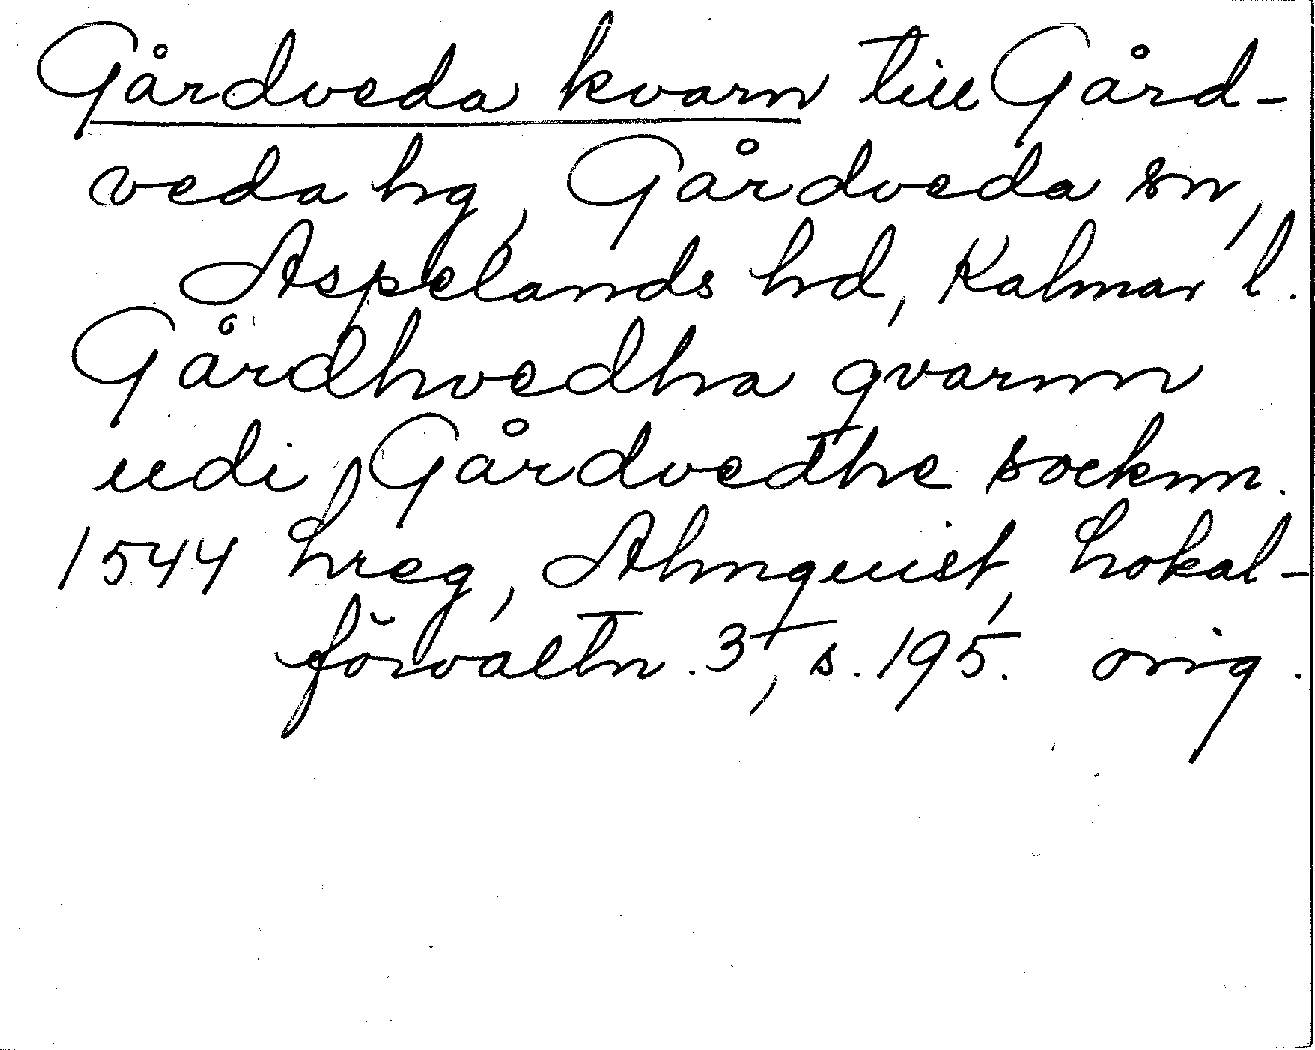 Gårdveda kvarn till Gård-
veda hg, Gårdveda sn,
Aspelands hd, Kalmar l.
Gårdhvedha qvarnn
udi Gårdvedhe socknn.
1544 hreg, Almquist, Lokal-
förvaltn. 3, s. 195. orig.